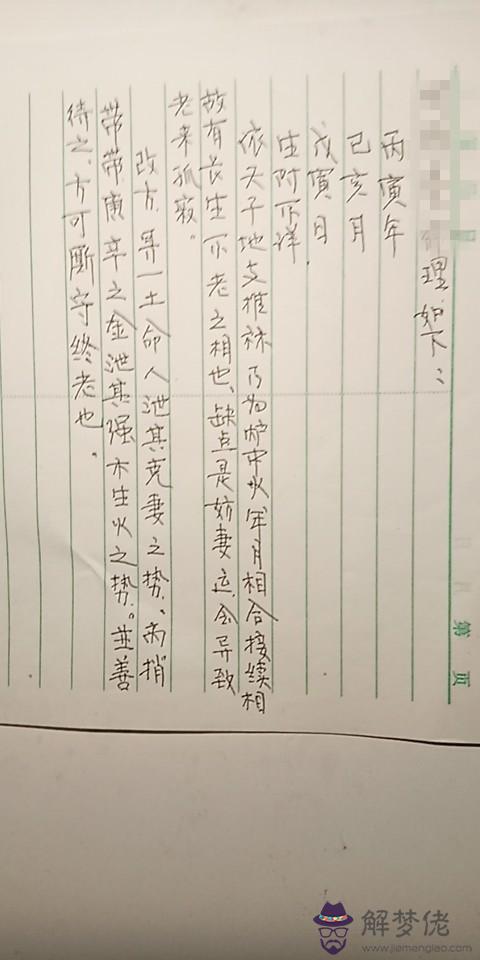 理如下：
丙寅年
己亥月
戊寅日
生时不详．
依天干地支推 乃为炉中火命年月相合接续相
故有长生不老之相也、缺点是妨妻运，会导致
老来孤寂。
改方，寻一土命人泄其克妻之势、而稍
带带庚辛之金泄其强木生火之势。并善
待之、方可 守终老也．
第 页
解梦佬
www.jiemenglao.com